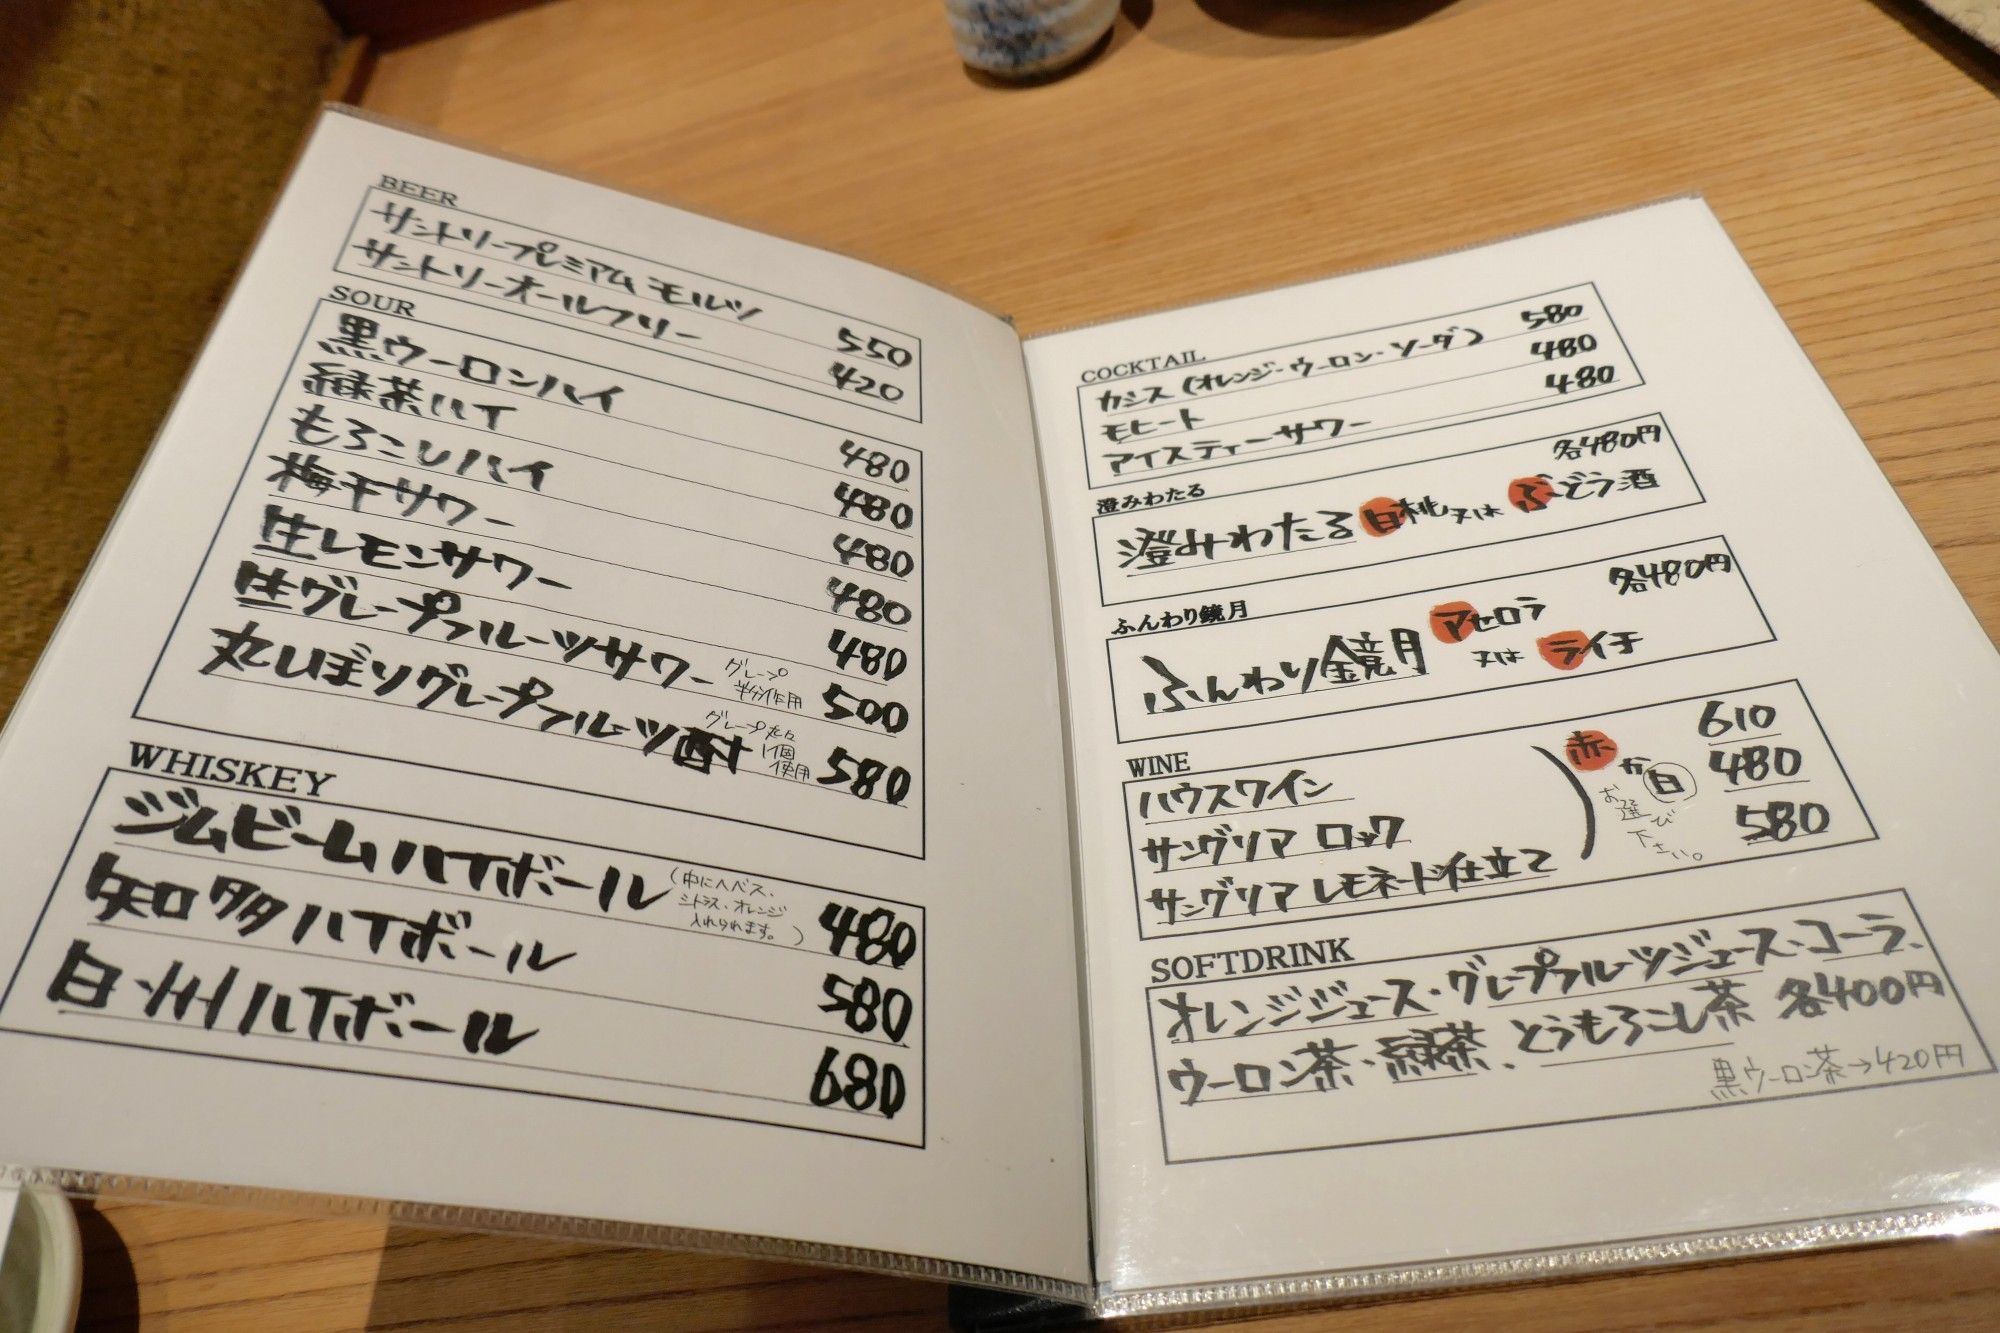 BEER
サントリープレミアム モルツ 550
サントリーオールフリー 420
SOUR
黒ウーロンハイ 480
緑茶ハイ 480
もろこしハイ 480
梅干サワー 480
生レモンサワー 480
生グレープフルーツサワー グレープ半分使用 500
丸しぼりグレープフルーツ酎 グレープ丸々1個使用 580
WHISKEY
ジムビームハイボール (中にハーベス、シトラス・オレンジ入れられます。) 480
知タハイボール 580
白州ハイボール 680
COCKTAIL
カシス(オレンジ・ウーロン・ソーダ) 580
モヒート 480
アイスティーサワー 480
澄みわたる
各480円
澄みわたる 白桃又は ぶどう酒
ふんわり鏡月
各480円
ふんわり鏡月 アセロラ 又は ライチ
WINE
ハウスワイン 610
サングリア ロック 480
サングリア レモネード仕立て 580
赤か白 お選び下さい。
SOFTDRINK
オレンジジュース・グレープフルーツジュース・コーラ、
ウーロン茶・緑茶、とうもろこし茶 各400円
黒ウーロン茶→420円